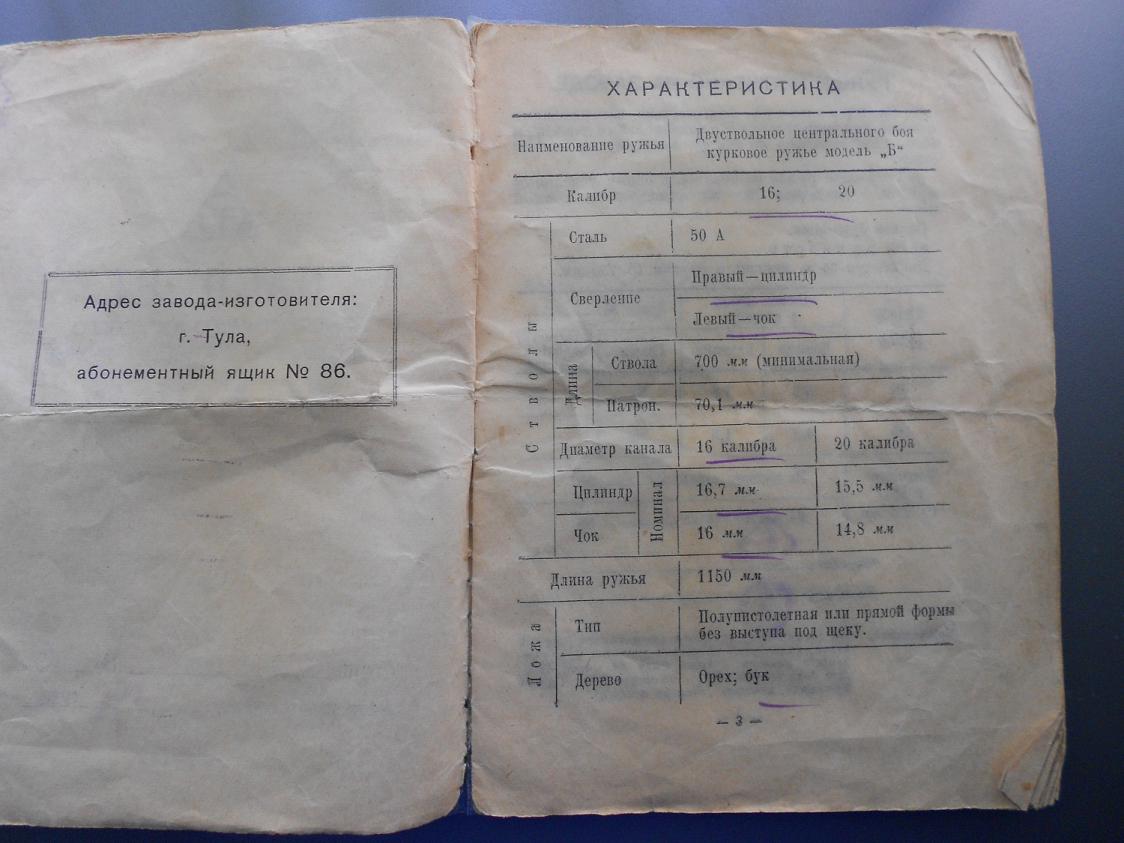 Адрес завода-изготовителя:
г. Тула,
абонементный ящик № 86.
ХАРАКТЕРИСТИКА
Наименование ружья
Двуствольное центрального боя
курковое ружье модель „Б“
Калибр
16; 20
Стволы
Сталь
50 А
Сверление
Правый—цилиндр
Левый—чок
Длина
Ствола
700 мм (минимальная)
Патрон.
70,1 мм
Диаметр канала
16 калибра
20 калибра
Цилиндр
Номинал
16,7 мм
15,5 мм
Чок
16 мм
14,8 мм
Длина ружья
1150 мм
Ложа
Тип
Полупистолетная или прямой формы
без выступа под щеку.
Дерево
Орех; бук
— 3 —